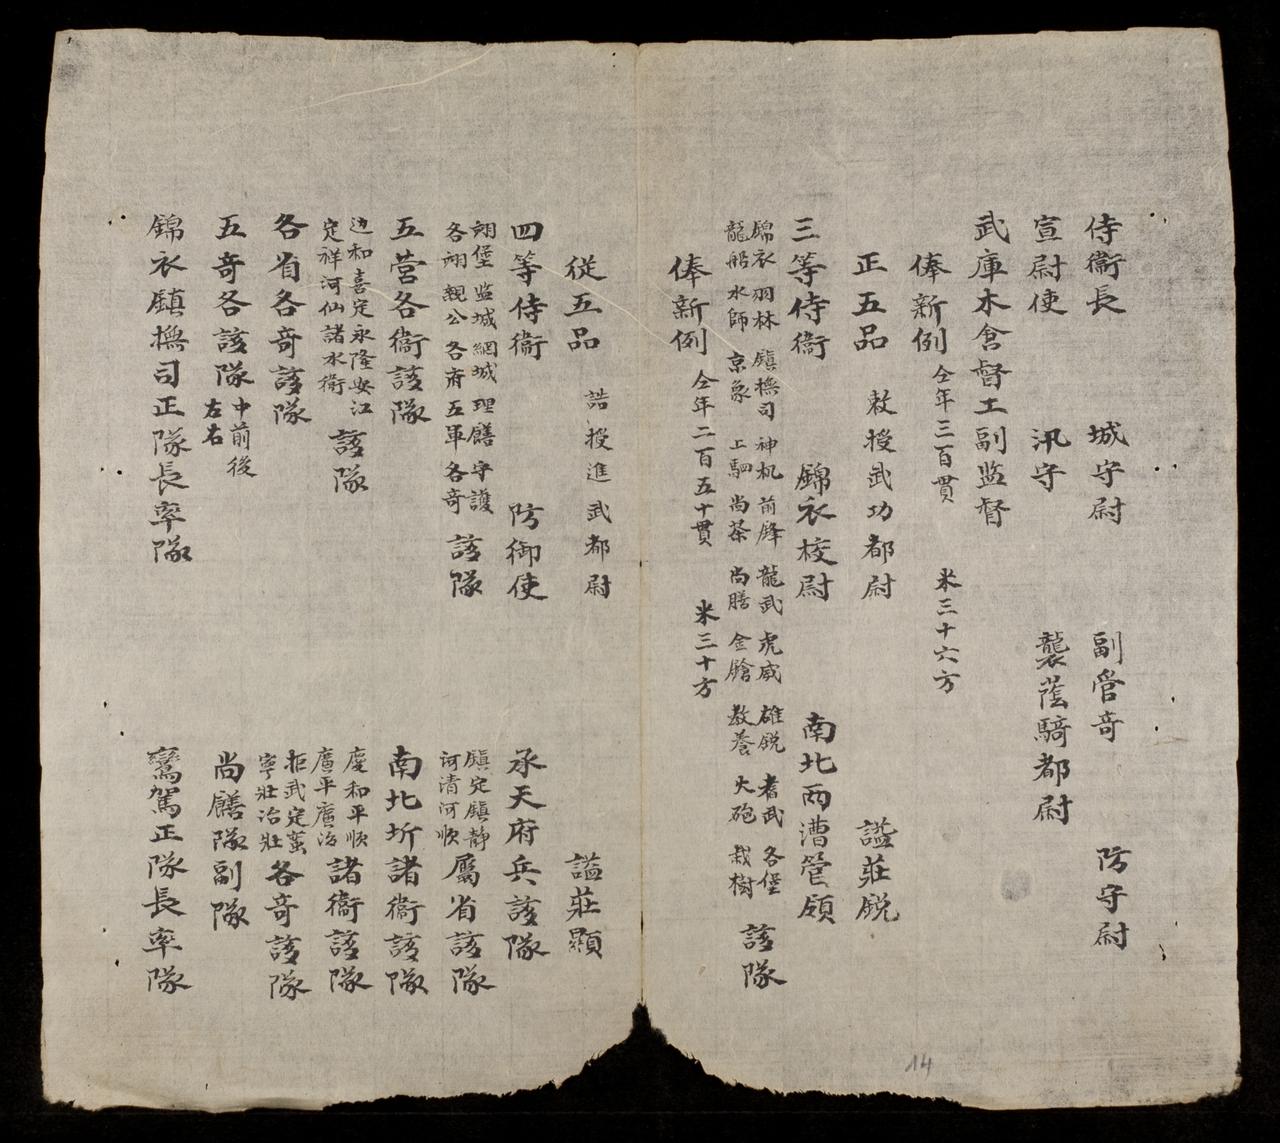 侍衞長 城守尉 副管奇 防守尉
宣尉使 汛守 襲蔭騎都尉
武庫木倉督工副监督
俸新例 仝年三百貫 米三十六方
正五品 敕授武功都尉 謚莊銳
三等侍衞 錦衣校尉 南北两漕管領
錦衣 羽林 鎮撫司 神机 前鋒 龍武 虎威 雄銳 耆武 各堡
龍船 水師 京象 上駟 尚茶 尚膳 金鎗 教養 大砲 栽樹 該隊
俸新例 仝年二百五十貫 米三十方
從五品 誥授進武都尉 謚莊顯
四等侍衞 防御使 承天府兵該隊
翊堡 监城 綱城 理膳 守護
各翊 親公 各府 五軍各奇 該隊
鎮定鎮静
河清河順 屬省該隊
五营各衞該隊 南北圻諸衞該隊
边和嘉定永隆安江
定祥河仙諸水衞 該隊
慶和平順
廣平廣治 諸衞該隊
各省各奇該隊
拒武定蛮
寧壯治壯 各奇該隊
五奇各該隊 中前後左右 尚膳隊副隊
錦衣鎮撫司正隊長率隊 鸞駕正隊長率隊
14